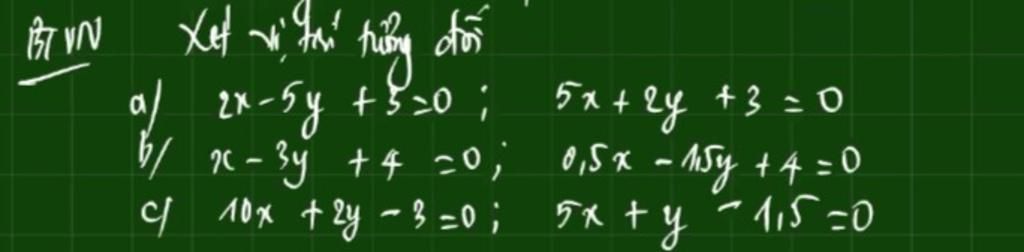 BTVN Xét vị trí tương đối
a/ 2x - 5y + 3 = 0 ; 5x + 2y + 3 = 0
b/ x - 3y + 4 = 0 ; 0,5x - 1,5y + 4 = 0
c/ 10x + 2y - 3 = 0 ; 5x + y - 1,5 = 0